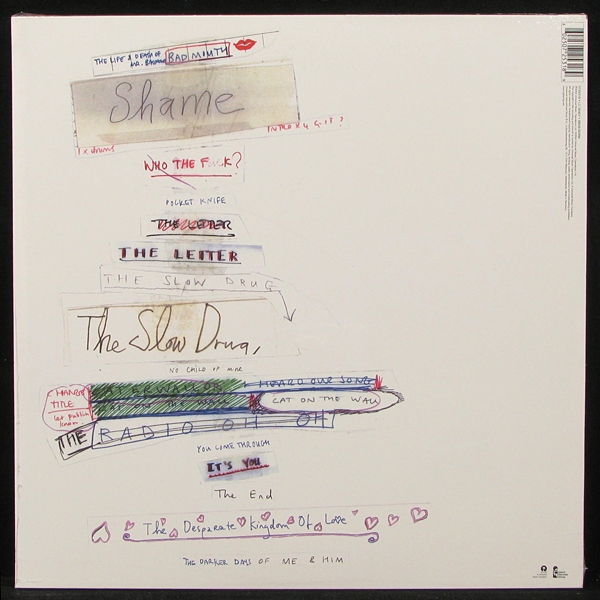 THE LIFE & DEATH OF
MR. BADMOUTH
BAD MOUTH
Shame
INTRO X 4 GIT?
1 x drums
WHO THE FUCK?
POCKET KNIFE
THE LETTER
THE LETTER
THE SLOW DRUG
The Slow Drug,
NO CHILD OF MINE
CHANGE
TITLE
let publish
know
HEARD OUR SONG
CAT ON THE WALL
THE
RADIO OH OH
YOU COME THROUGH
IT'S YOU
The End
The Desparate Kingdom Of Love
THE DARKER DAYS OF ME & HIM